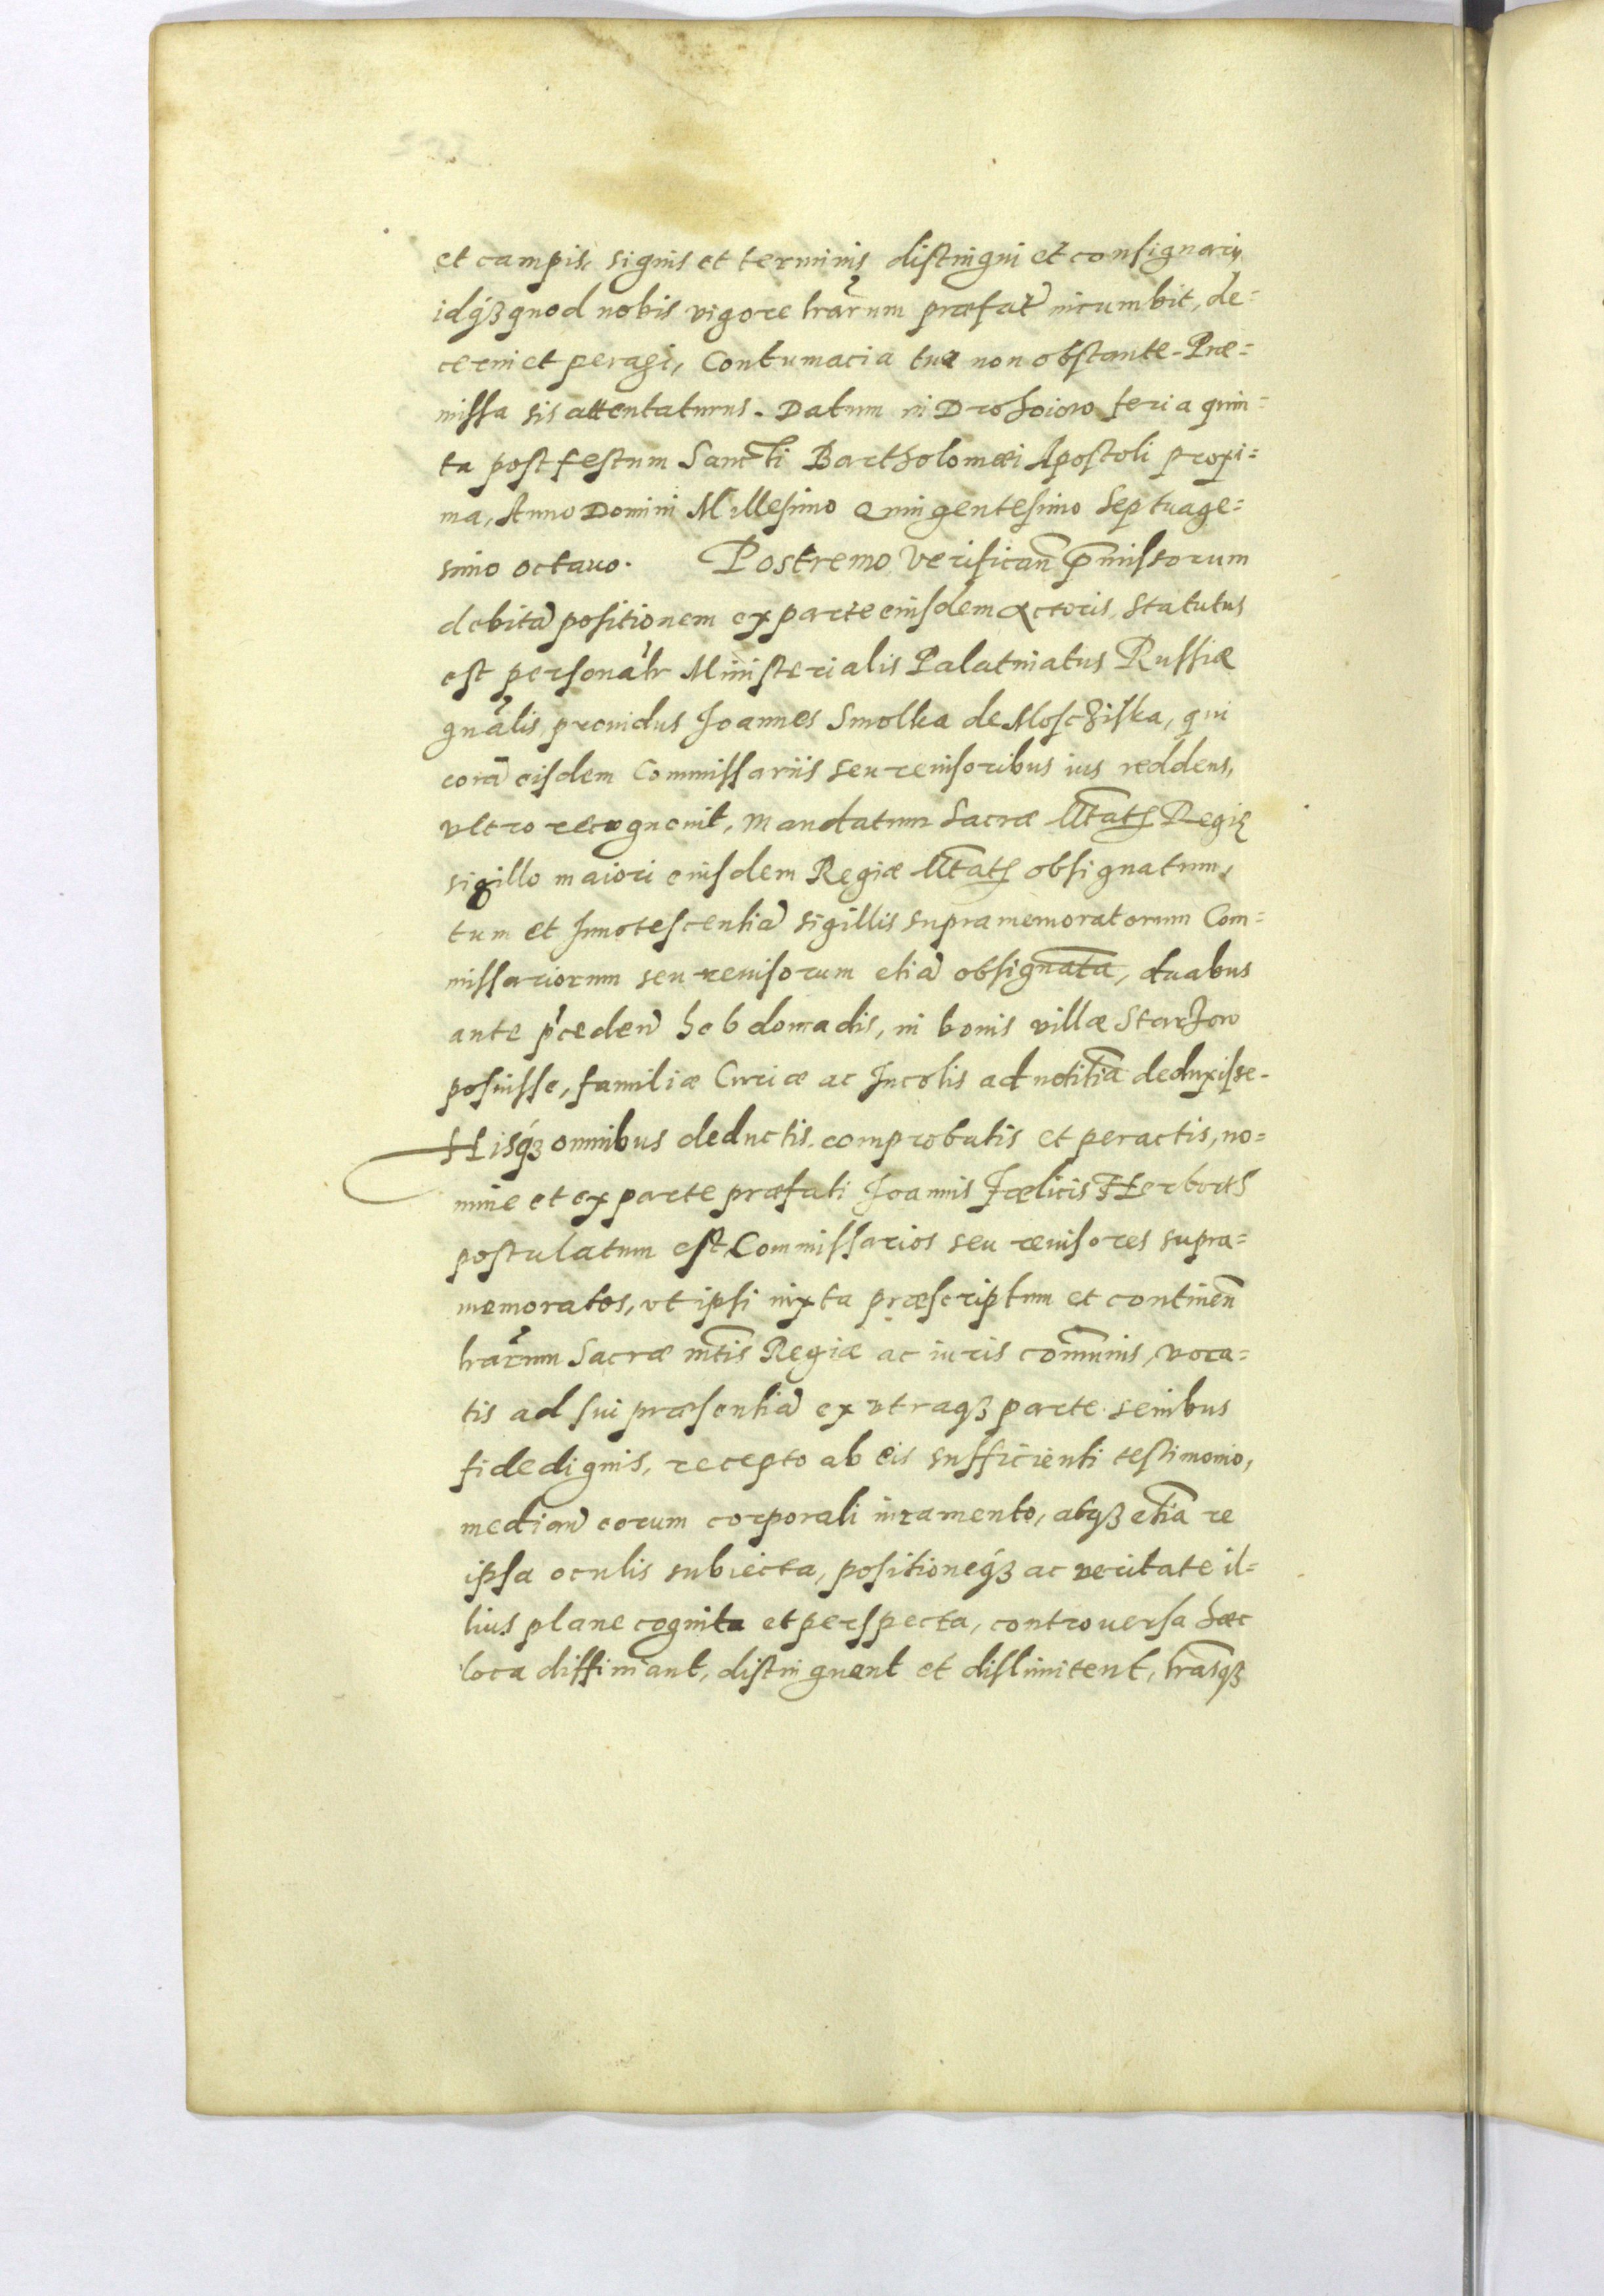 et campis, signis et terminis distingui et consignari,
idq́ꝫ quod nobis vigore lrarum præfat̃ incumbit, de=
cerni et peragi, Contumacia tua non obstante. Præ=
missa sis attentaturus. Datum in Drohoiow feria quin=
ta post festum Sancti Bartholomæi Apostoli proxi=
ma, Anno Domini Millesimo Quingentesimo Septuage=
simo octauo. Postremo verifican̄ p̄missorum
debitā positionem ex parte eiusdem Actoris, statutus
est personalr Ministerialis Palatinatus Russiæ
gnalis, prouidus Joannes Smolka de Mosčziska, qui
corā eisdem Commissariis seu reuisoribus ius reddens,
vltro recognouit, mandatum Sacræ Mtatꝭ Regię
sigillo maiori eiusdem Regiæ Mtatꝭ obsignatum,
tum et Innotescentiā sigillis supramemoratorum Com=
missariorum seu reuisorum etiā obsignata, duabus
ante p̃ceden̄ hebdomadis, in bonis villæ Starzow
posuisse, familiæ Curiæ ac Incolis ad notitiā deduxisse.
Hisq́ꝫ omnibus deductis, comprobatis et peractis, no=
mine et ex parte præfati Joannis Fœlicis Herborth
postulatum est, Commissarios seu reuisores supra=
memoratos, vt ipsi iuxta præscriptum et continen̄
lrarum Sacræ mtis Regiæ ac iuris com̄unis, voca=
tis ad sui præsentiā ex vtraqꝫ parte senibus
fidedignis, recepto ab eis sufficienti testimonio,
median̄ eorum corporali iuramento, atqꝫ etiā re
ipsa oculis subiecta, positioneq́ꝫ ac veritate il=
lius plane cognita et perspecta, controuersa hæc
loca diffiniant, distinguant et dislimitent, lrasqꝫ